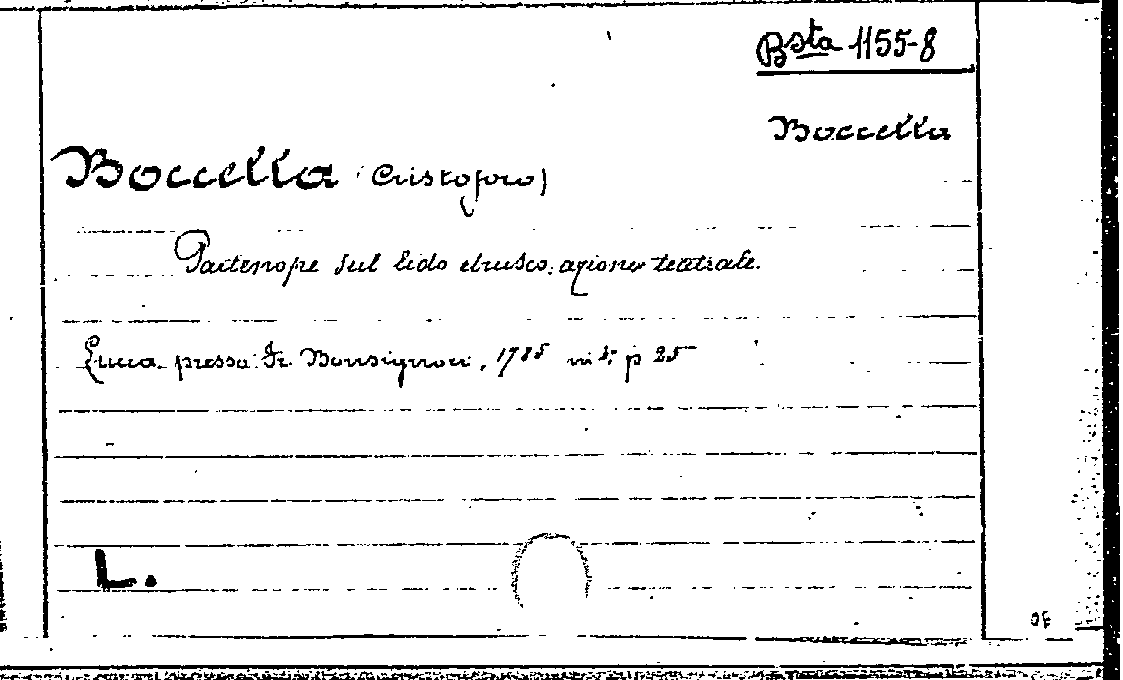 Bsta 1155-8
Boccella
Boccella (Cristoforo)
Partenope sul lido etrusco, azione teatrale.
Lucca presso Fr. Bonsignori, 1785 in 8° p 25
L.